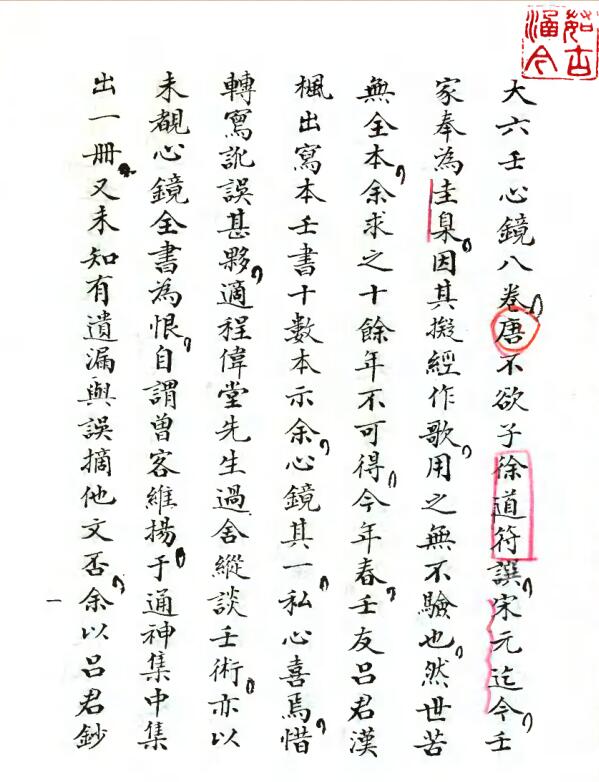 茹古涵今
大六壬心鏡八卷唐不欲子徐道符譔宋元迄今壬
家奉為圭臬因其擬經作歌用之無不驗也然世苦
無全本余求之十餘年不可得今年春壬友呂君漢
楓出寫本壬書十數本示余心鏡其一私心喜焉惜
轉寫訛誤甚夥適程偉堂先生過舍縱談壬術亦以
未覩心鏡全書為恨自謂曾客維揚于通神集中集
出一册又未知有遺漏與誤摘他文否余以呂君鈔
一